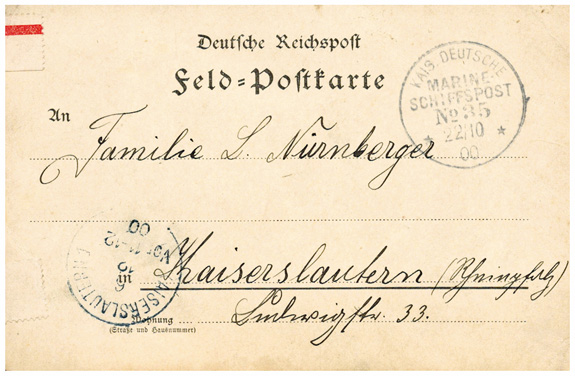 Deutsche Reichspost
Feld=Postkarte
KAIS. DEUTSCHE
MARINE-
SCHIFFSPOST
No 35
* 22/10 *
00
An
Familie L. Nürnberger
Kaiserslautern (Rheinpfalz)
Ludwigstr. 33.
KAISERSLAUTERN
Vor 11-12
00
Wohnung
(Straße und Hausnummer)